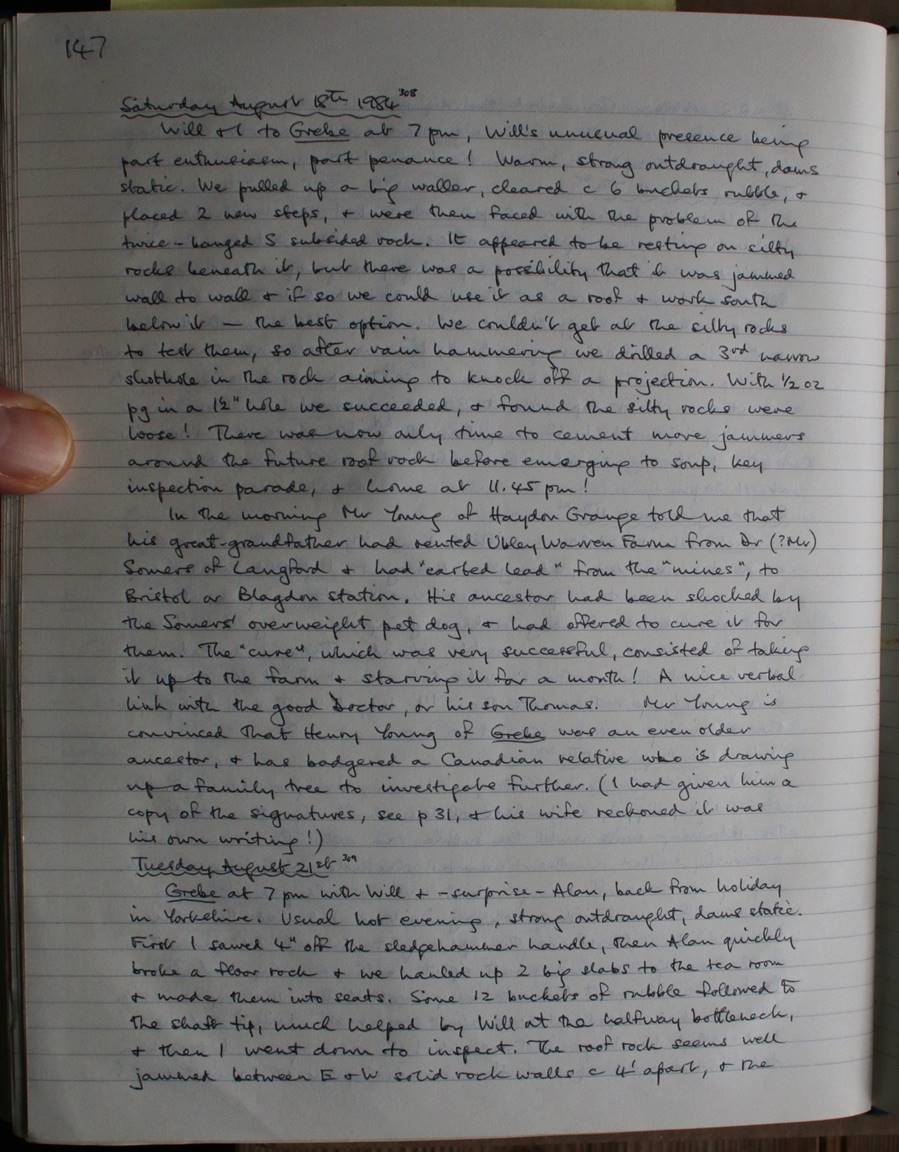 147
Saturday August 18th 1984 308
Will & I to Grebe at 7 pm, Will's unusual presence being
part enthusiasm, part penance! Warm, strong outdraught, dams
static. We pulled up a big waller, cleared c 6 buckets rubble, &
placed 2 new steps, & were then faced with the problem of the
twice-banged S subsided rock. It appeared to be resting on silty
rocks beneath it, but there was a possibility that it was jammed
wall to wall & if so we could use it as a roof & work south
below it — the best option. We couldn't get at the silty rocks
to test them, so after vain hammering we drilled a 3rd narrow
shothole in the rock aiming to knock off a projection. With 1/2 oz
pg in a 12" hole we succeeded, & found the silty rocks were
loose! There was now only time to cement more jammers
around the future roof rock before emerging to soup, key
inspection parade, & home at 11.45 pm!
In the morning Mr Young of Haydon Grange told me that
his great-grandfather had rented Ubley Warren Farm from Dr (?Mr)
Somers of Langford & had "carted lead" from the "mines", to
Bristol or Blagdon station. His ancestor had been shocked by
the Somers' overweight pet dog, & had offered to cure it for
them. The "cure", which was very successful, consisted of taking
it up to the farm & starving it for a month! A nice verbal
link with the good Doctor, or his son Thomas. Mr Young is
convinced that Henry Young of Grebe was an even older
ancestor, & has badgered a Canadian relative who is drawing
up a family tree to investigate further. (I had given him a
copy of the signatures, see p 31, & his wife reckoned it was
his own writing!)
Tuesday August 21st 309
Grebe at 7 pm with Will & - surprise - Alan, back from holiday
in Yorkshire. Usual hot evening, strong outdraught, dams static.
First I sawed 4" off the sledgehammer handle, then Alan quickly
broke a floor rock & we hauled up 2 big slabs to the tea room
& made them into seats. Some 12 buckets of rubble followed to
the shaft tip, much helped by Will at the halfway bottleneck,
& then I went down to inspect. The roof rock seems well
jammed between E & W solid rock walls c 4' apart, & the